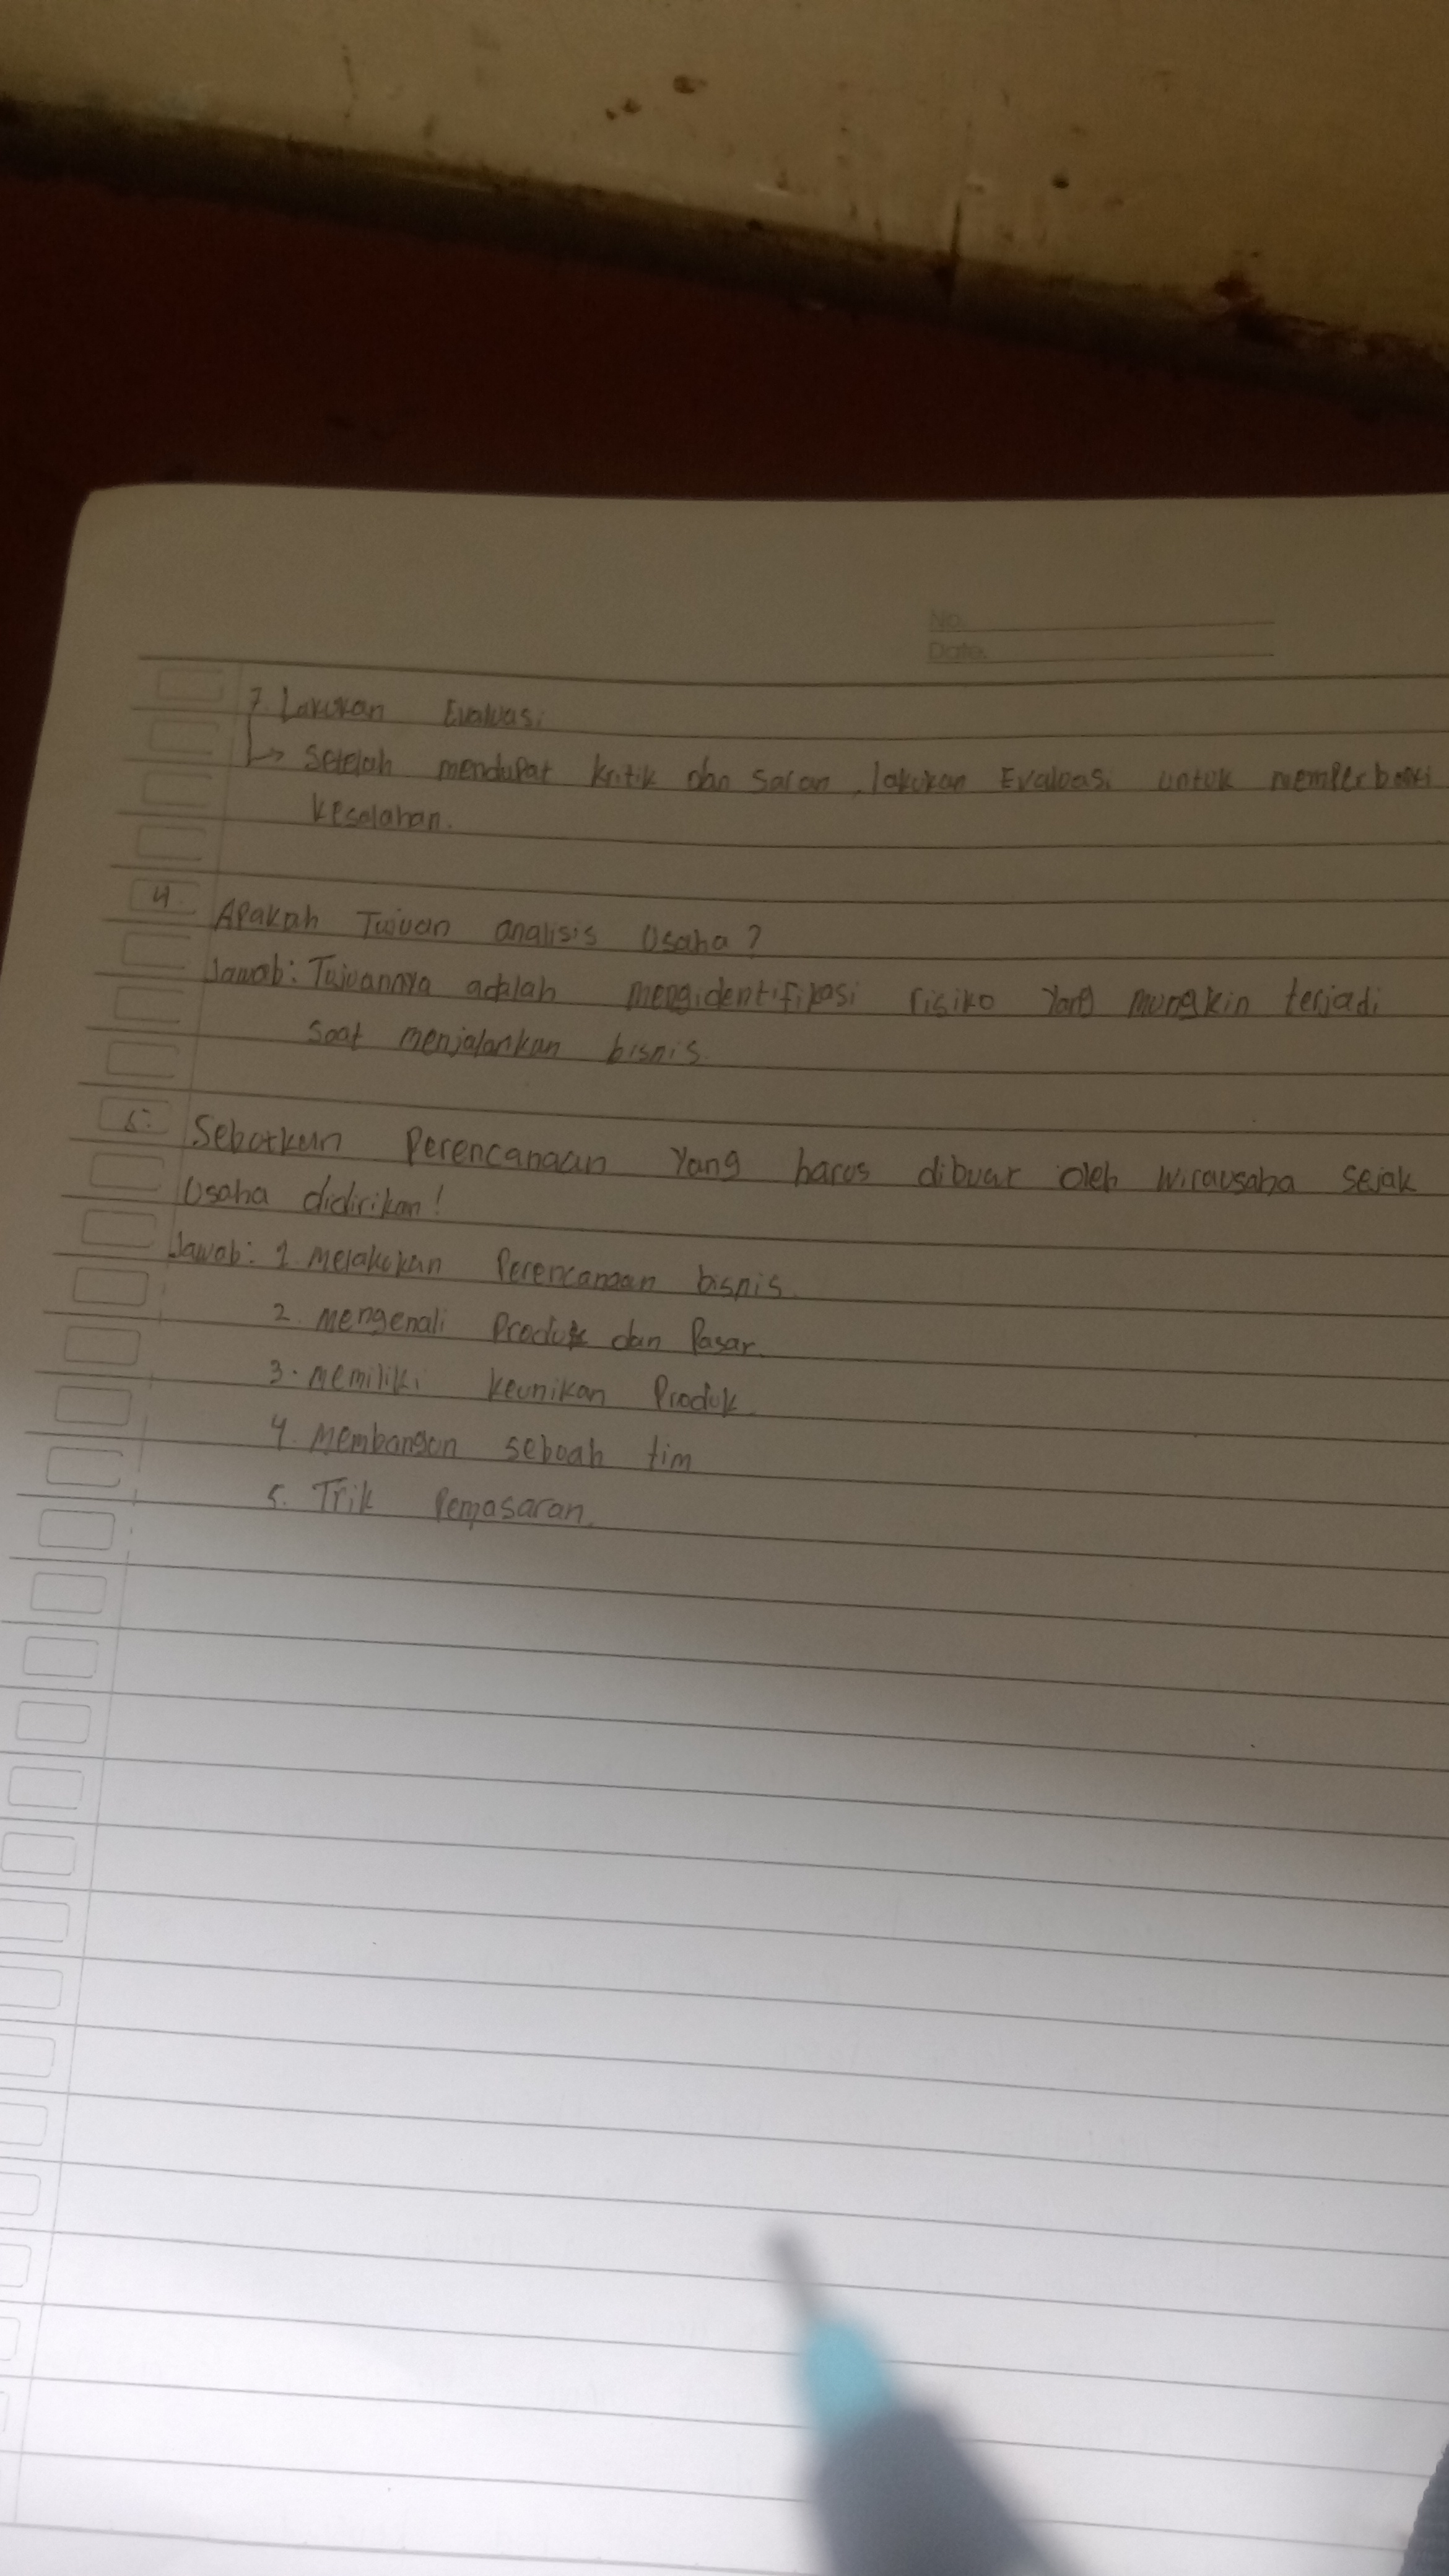 No.
Date.
7. Lakukan Evaluasi
↳ Setelah mendapat kritik dan saran, lakukan Evaluasi untuk memperbaiki
kesalahan.
4. Apakah Tujuan analisis Usaha?
Jawab: Tujuannya adalah mengidentifikasi risiko yang mungkin terjadi
saat menjalankan bisnis.
5. Sebutkan Perencanaan Yang harus dibuat oleh wirausaha sejak
Usaha didirikan!
Jawab: 1. Melakukan Perencanaan bisnis.
2. mengenali Produk dan Pasar.
3. memiliki keunikan Produk.
4. Membangun sebuah tim
5. Trik Pemasaran.